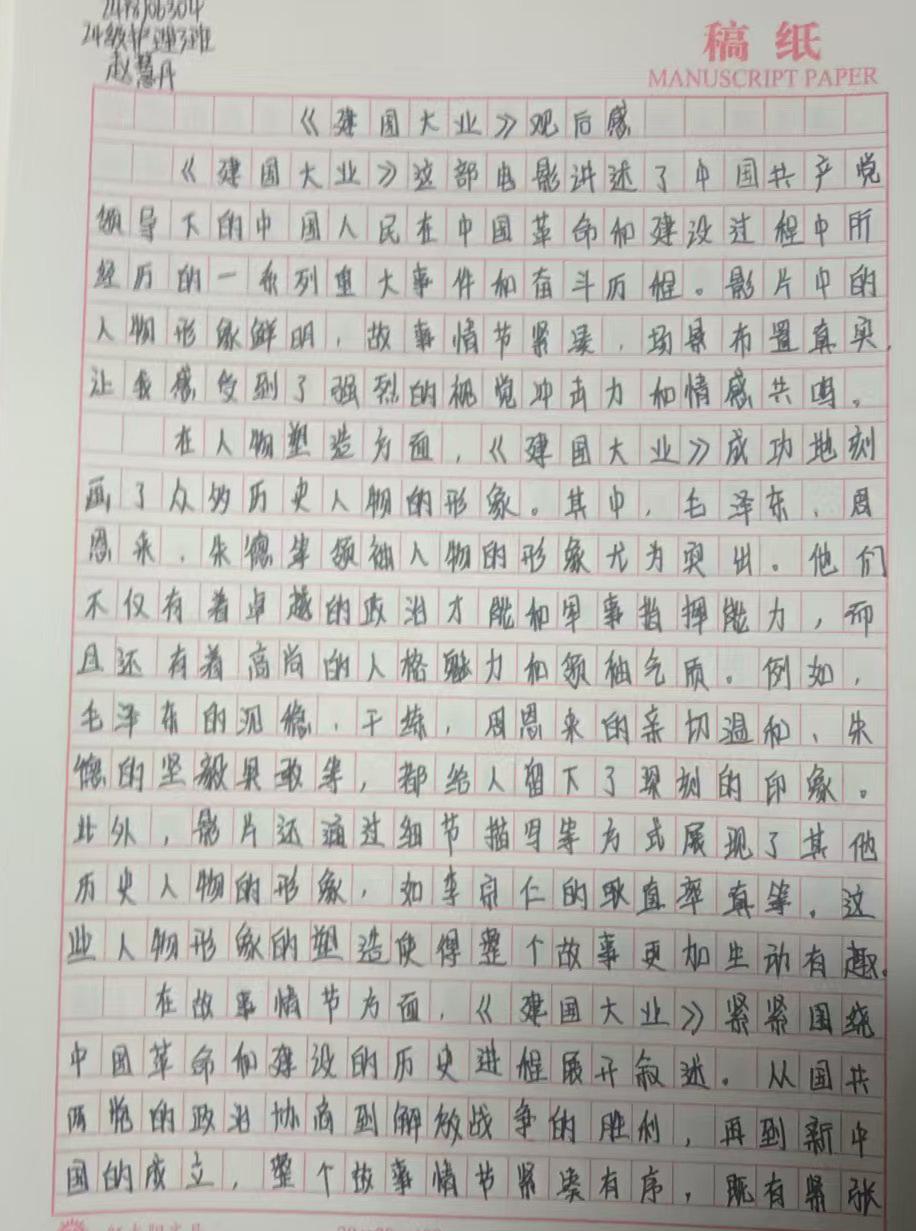 24级护理3班
赵慧丹
稿纸
MANUSCRIPT PAPER
《建国大业》观后感
《建国大业》这部电影讲述了中国共产党
领导下的中国人民在中国革命和建设过程中所
经历的一系列重大事件和奋斗历程。影片中的
人物形象鲜明,故事情节紧凑,场景布置真实,
让我感受到了强烈的视觉冲击力和情感共鸣。
在人物塑造方面,《建国大业》成功地刻
画了众多历史人物的形象。其中,毛泽东、周
恩来、朱德等领袖人物的形象尤为突出。他们
不仅有着卓越的政治才能和军事指挥能力,而
且还有着高尚的人格魅力和领袖气质。例如,
毛泽东的沉稳、干练,周恩来的亲切温和、朱
德的坚毅果敢等,都给人留下了深刻的印象。
此外,影片还通过细节描写等方式展现了其他
历史人物的形象,如李宗仁的耿直率真等。这
些人物形象的塑造使得整个故事更加生动有趣。
在故事情节方面,《建国大业》紧紧围绕
中国革命和建设的历史进程展开叙述。从国共
两党的政治协商到解放战争的胜利,再到新中
国的成立,整个故事情节紧凑有序,既有紧张